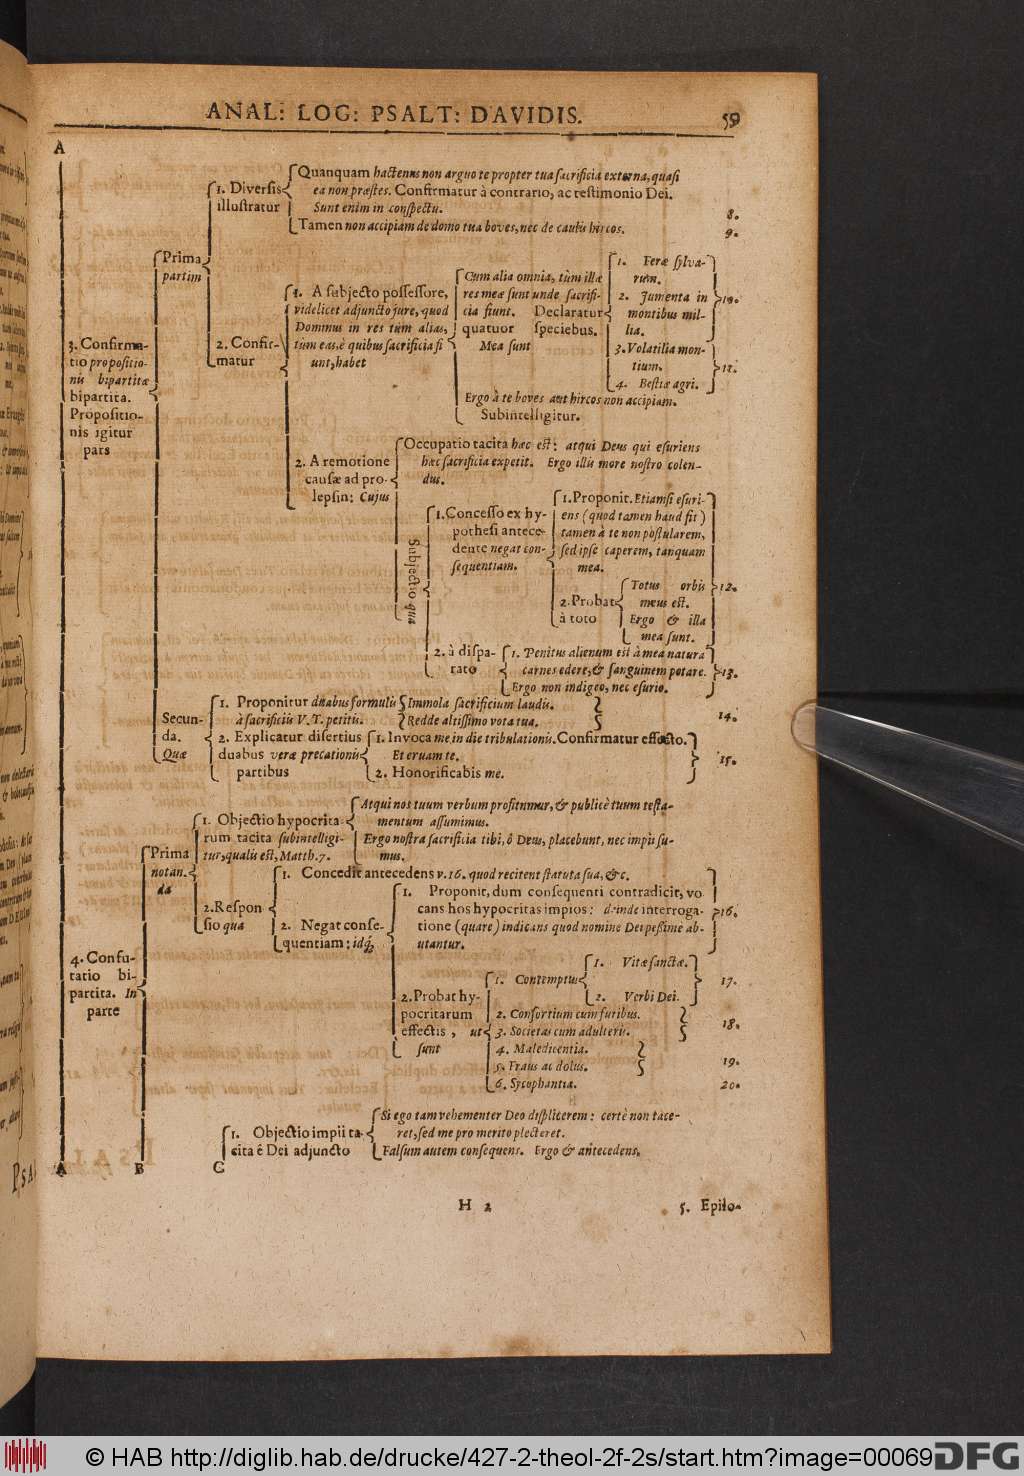 ANAL: LOG: PSALT: DAVIDIS.
59
A
3. Confirma-
tio propositio-
nis bipartitæ
bipartita.
Propositio-
nis igitur
pars
Prima
partim
1. Diversis
illustratur
Quanquam hactenus non arguo te propter tua sacrificia externa, quasi
ea non præstes. Confirmatur à contrario, ac testimonio Dei.
Sunt enim in conspectu.
8.
Tamen non accipiam de domo tua boves, nec de caulis hircos.
9.
2. Confir-
matur
1. A subjecto possessore,
videlicet adjuncto jure, quod
Dominus in res tùm alias,
tùm eas, è quibus sacrificia fi
unt, habet
Cum alia omnia, tùm illæ
res meæ sunt unde sacrifi-
cia fiunt. Declaratur
quatuor speciebus.
Mea sunt
1. Feræ sylva-
rum.
2. Jumenta in
montibus mil-
lia.
10.
3. Volatilia mon-
tium.
4. Bestiæ agri.
11.
Ergo à te boves aut hircos non accipiam.
Subintelligitur.
2. A remotione
causæ ad pro-
lepsin: Cujus
Occupatio tacita hæc est: atqui Deus qui esuriens
hæc sacrificia expetit. Ergo illis more nostro colen-
dus.
Subjectio qua
1. Concesso ex hy-
pothesi antece-
dente negat con-
sequentiam.
1. Proponit. Etiamsi esuri-
ens (quod tamen haud fit)
tamen à te non postularem,
sed ipse caperem, tanquam
mea.
2. Probat
à toto
Totus orbis
meus est.
Ergo & illa
mea sunt.
12.
2. à dispa-
rato
1. Penitus alienum est à mea natura
carnes edere, & sanguinem potare.
Ergo non indigeo, nec esurio.
13.
Secun-
da.
Quæ
1. Proponitur duabus formulis
à sacrificiis V. T. petitis.
Immola sacrificium laudis.
Redde altissimo vota tua.
14.
2. Explicatur disertius
duabus veræ precationis
partibus
1. Invoca me in die tribulationis. Confirmatur effecto.
Et eruam te.
2. Honorificabis me.
15.
4. Confu-
tatio bi-
partita. In
parte
Prima
notan-
da
1. Objectio hypocrita
rum tacita subintelligi-
tur, qualis est, Matth. 7.
Atqui nos tuum verbum profitemur, & publicè tuum testa-
mentum assumimus.
Ergo nostra sacrificia tibi, ô Deus, placebunt, nec impii su-
mus.
2. Respon
sio qua
1. Concedit antecedens v. 16. quod recitent statuta sua, &c.
2. Negat conse-
quentiam: idq́;
1. Proponit, dum consequenti contradicit, vo
cans hos hypocritas impios: deinde interroga-
tione (quare) indicans quod nomine Dei pessime ab-
utantur.
16.
2. Probat hy-
pocritarum
effectis, ut
sunt
1. Contemptus
1. Vitæ sanctæ.
2. Verbi Dei.
17.
2. Consortium cum furibus.
3. Societas cum adulteris.
18.
4. Maledicentia.
5. Fraus ac dolus.
19.
6. Sycophantia.
20.
1. Objectio impii ta-
cita è Dei adjuncto
Si ego tam vehementer Deo displicerem: certè non tace-
ret, sed me pro merito plecteret.
Falsum autem consequens. Ergo & antecedens.
A B C
H 2
5. Epilo-
© HAB http://diglib.hab.de/drucke/427-2-theol-2f-2s/start.htm?image=00069
DFG